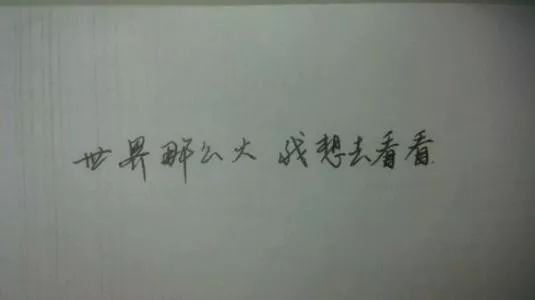 世界那么大 我想去看看